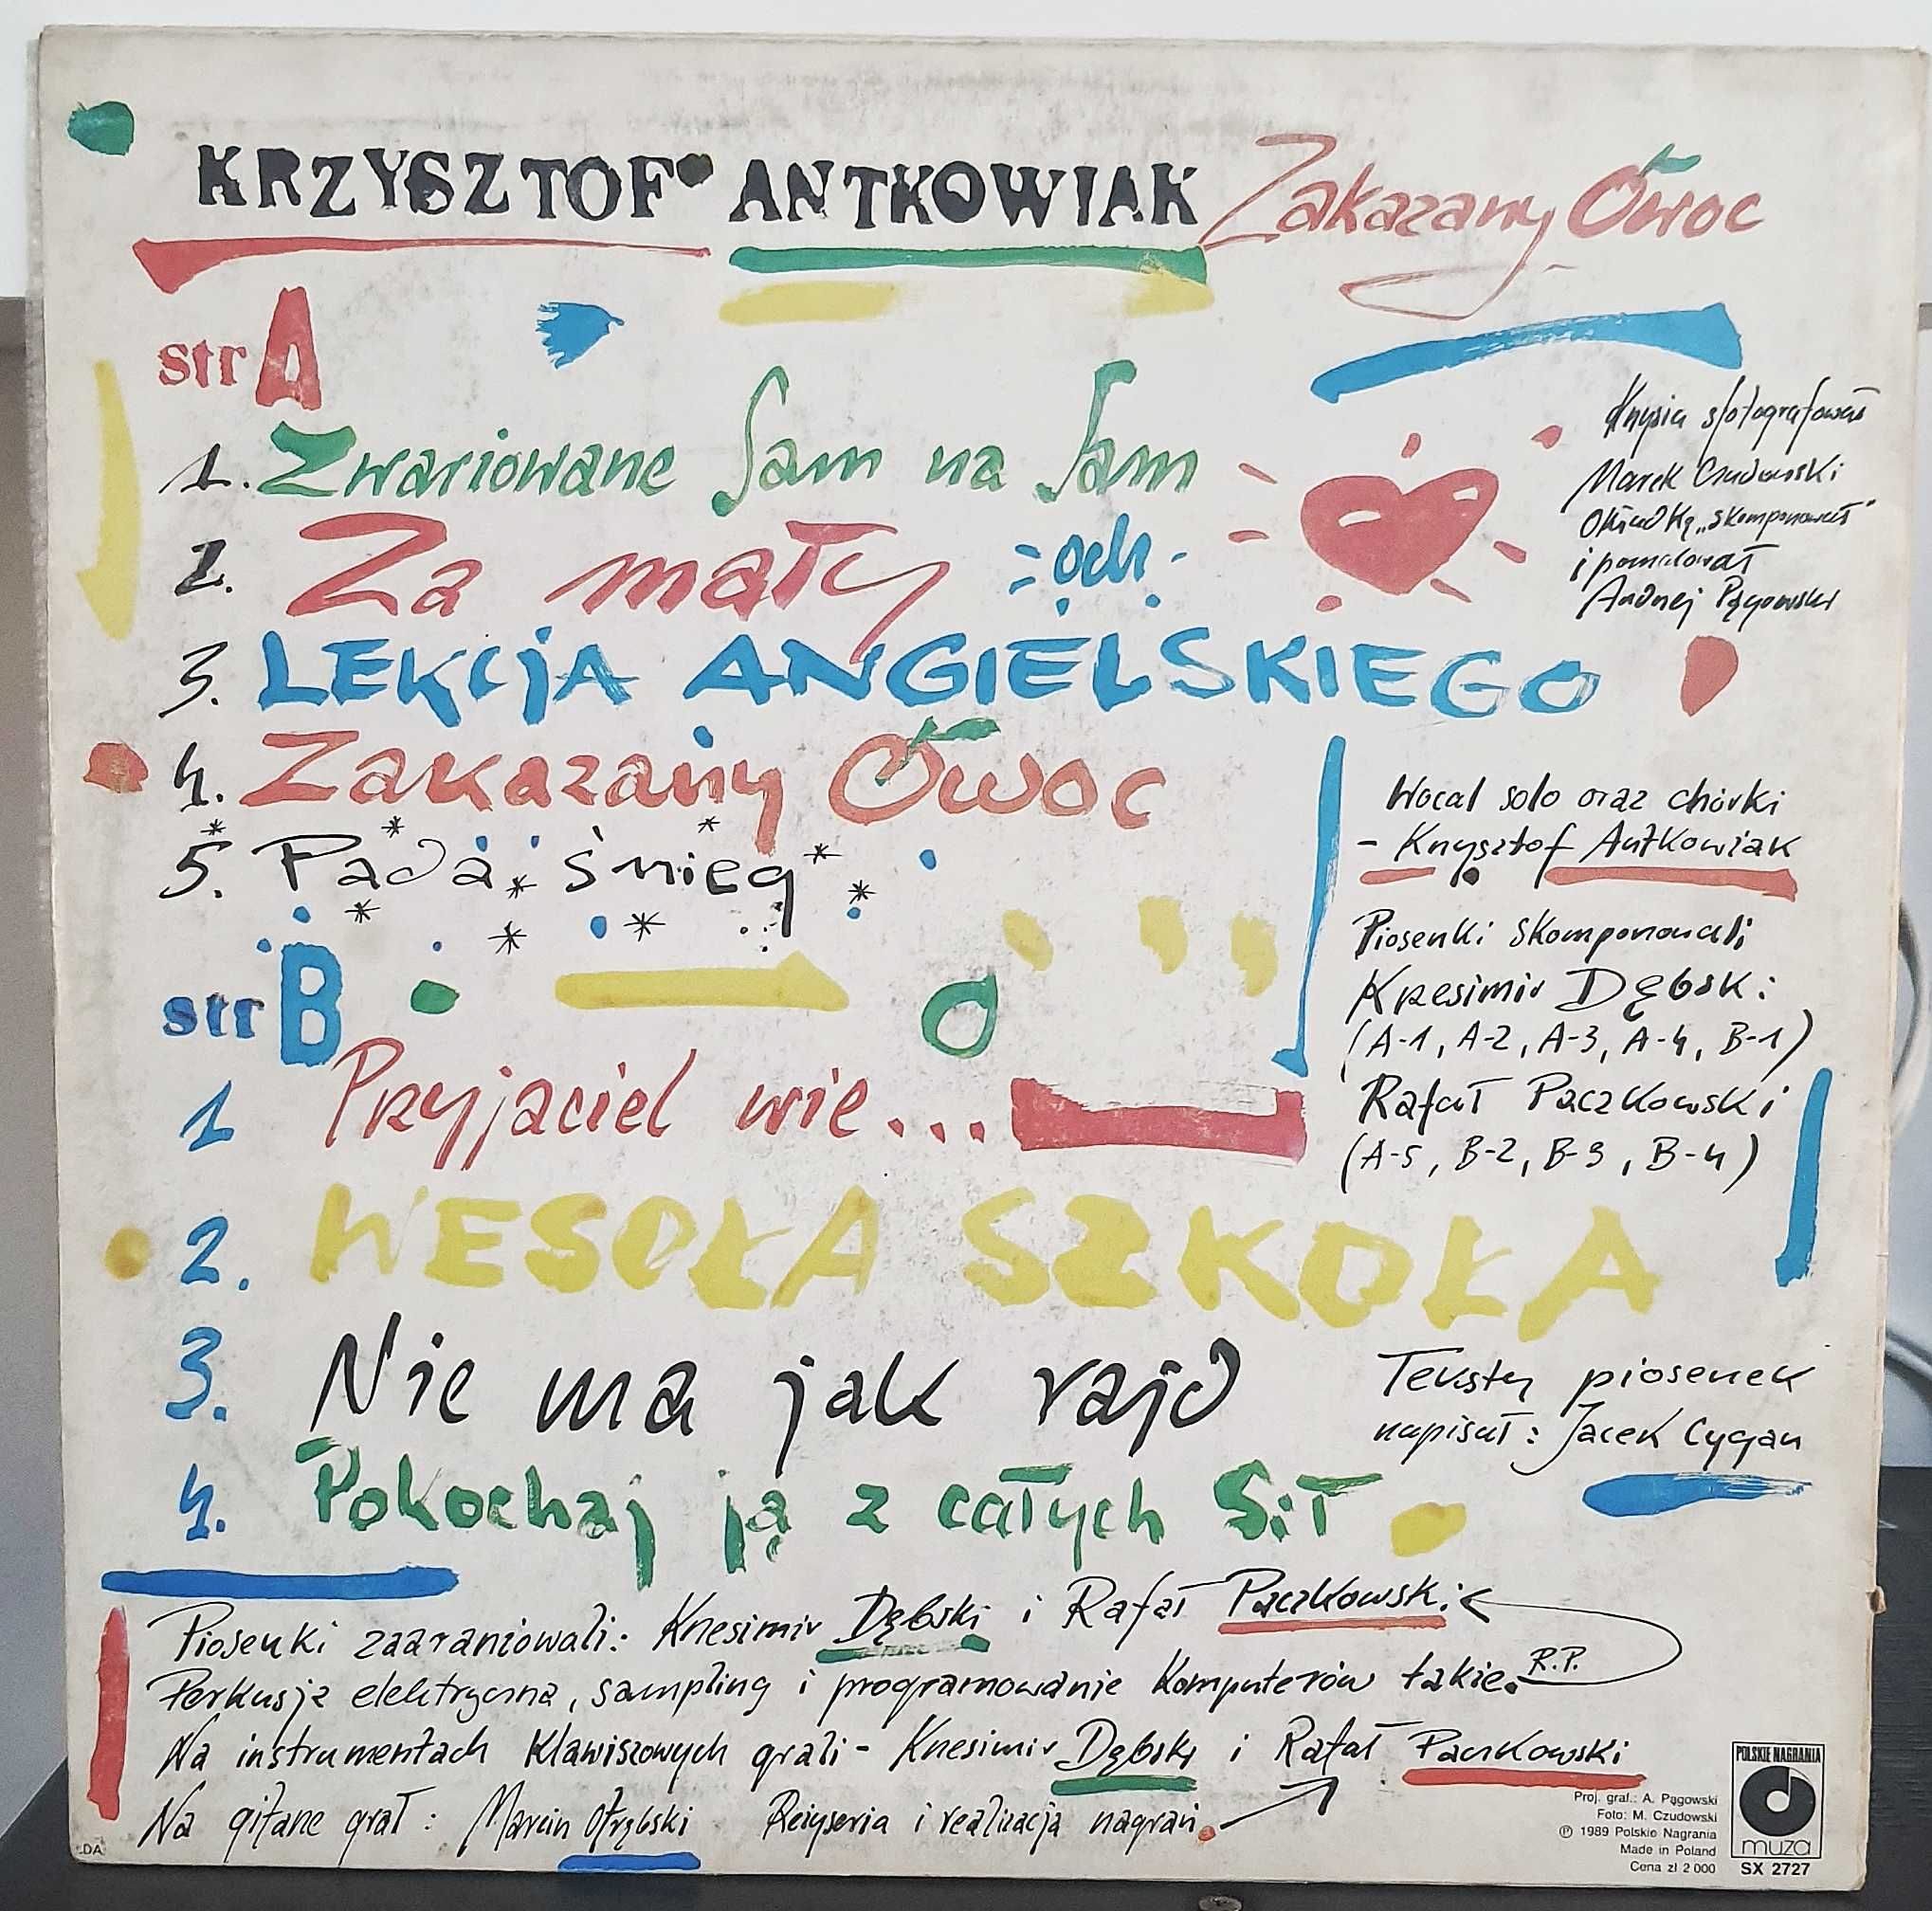 KRZYSZTOF ANTKOWIAK Zakazany Owoc
str A
1. Zwariowane Sam na Sam
2. Za mały och
3. LEKCJA ANGIELSKIEGO
4. Zakazany Owoc
5. Pada śnieg
Krzysia sfotografował
Marek Czudowski
Okładkę „skomponował"
i pomalował
Andrzej Pągowski
Wocal solo oraz chórki
- Krzysztof Antkowiak
Piosenki skomponowali
Krzesimir Dębski
(A-1, A-2, A-3, A-4, B-1)
Rafał Paczkowski
(A-5, B-2, B-3, B-4)
str B
1 Przyjaciel wie...
2. WESOŁA SZKOŁA
3. Nie ma jak rajd
4. Pokochaj ją z całych sił
Teksty piosenek
napisał: Jacek Cygan
Piosenki zaaranżowali: Krzesimir Dębski i Rafał Paczkowski
Perkusja elektryczna, sampling i programowanie Komputerów także. R.P.
Na instrumentach Klawiszowych grali - Krzesimir Dębski i Rafał Paczkowski
Na gitarze grał: Marcin Otrębski Reżyseria i realizacja nagrań.
DA
Proj. graf.: A. Pągowski
Foto: M. Czudowski
Ⓟ 1989 Polskie Nagrania
Made in Poland
Cena zł 2 000
POLSKIE NAGRANIA
muza
SX 2727